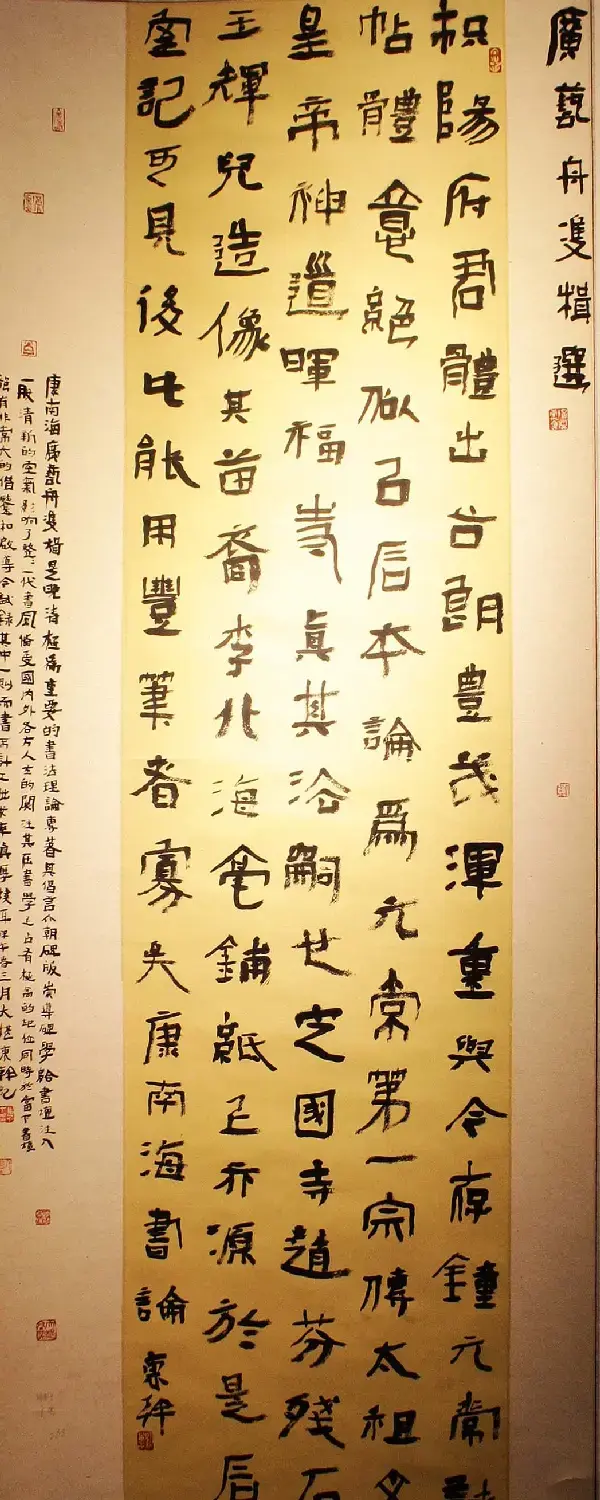 廣藝舟雙楫選
枳陽府君體出谷朗豊茂渾重與今存鍾元常諸
帖體意絕似㠯石本論爲元常第一宗傳太祖文
皇帝神道暉福寺真其法嗣也定國寺趙芬殘石
王輝兒造像其苗裔李北海毫鋪紙上亦源於是石
室記可見後此能用豐筆者寡矣康南海書論 東幹
康南海廣藝舟雙楫是晚清極爲重要的書法理論專著其倡言北朝碑版崇尊碑學給書壇注入
一股清新的空氣影响了整整一代書風備受國内外各方人士的關注其在書學上占有極高的地位同時於當下書壇
有非常大的借鑒和啟導今試錄其中一則而書 三月 東幹記